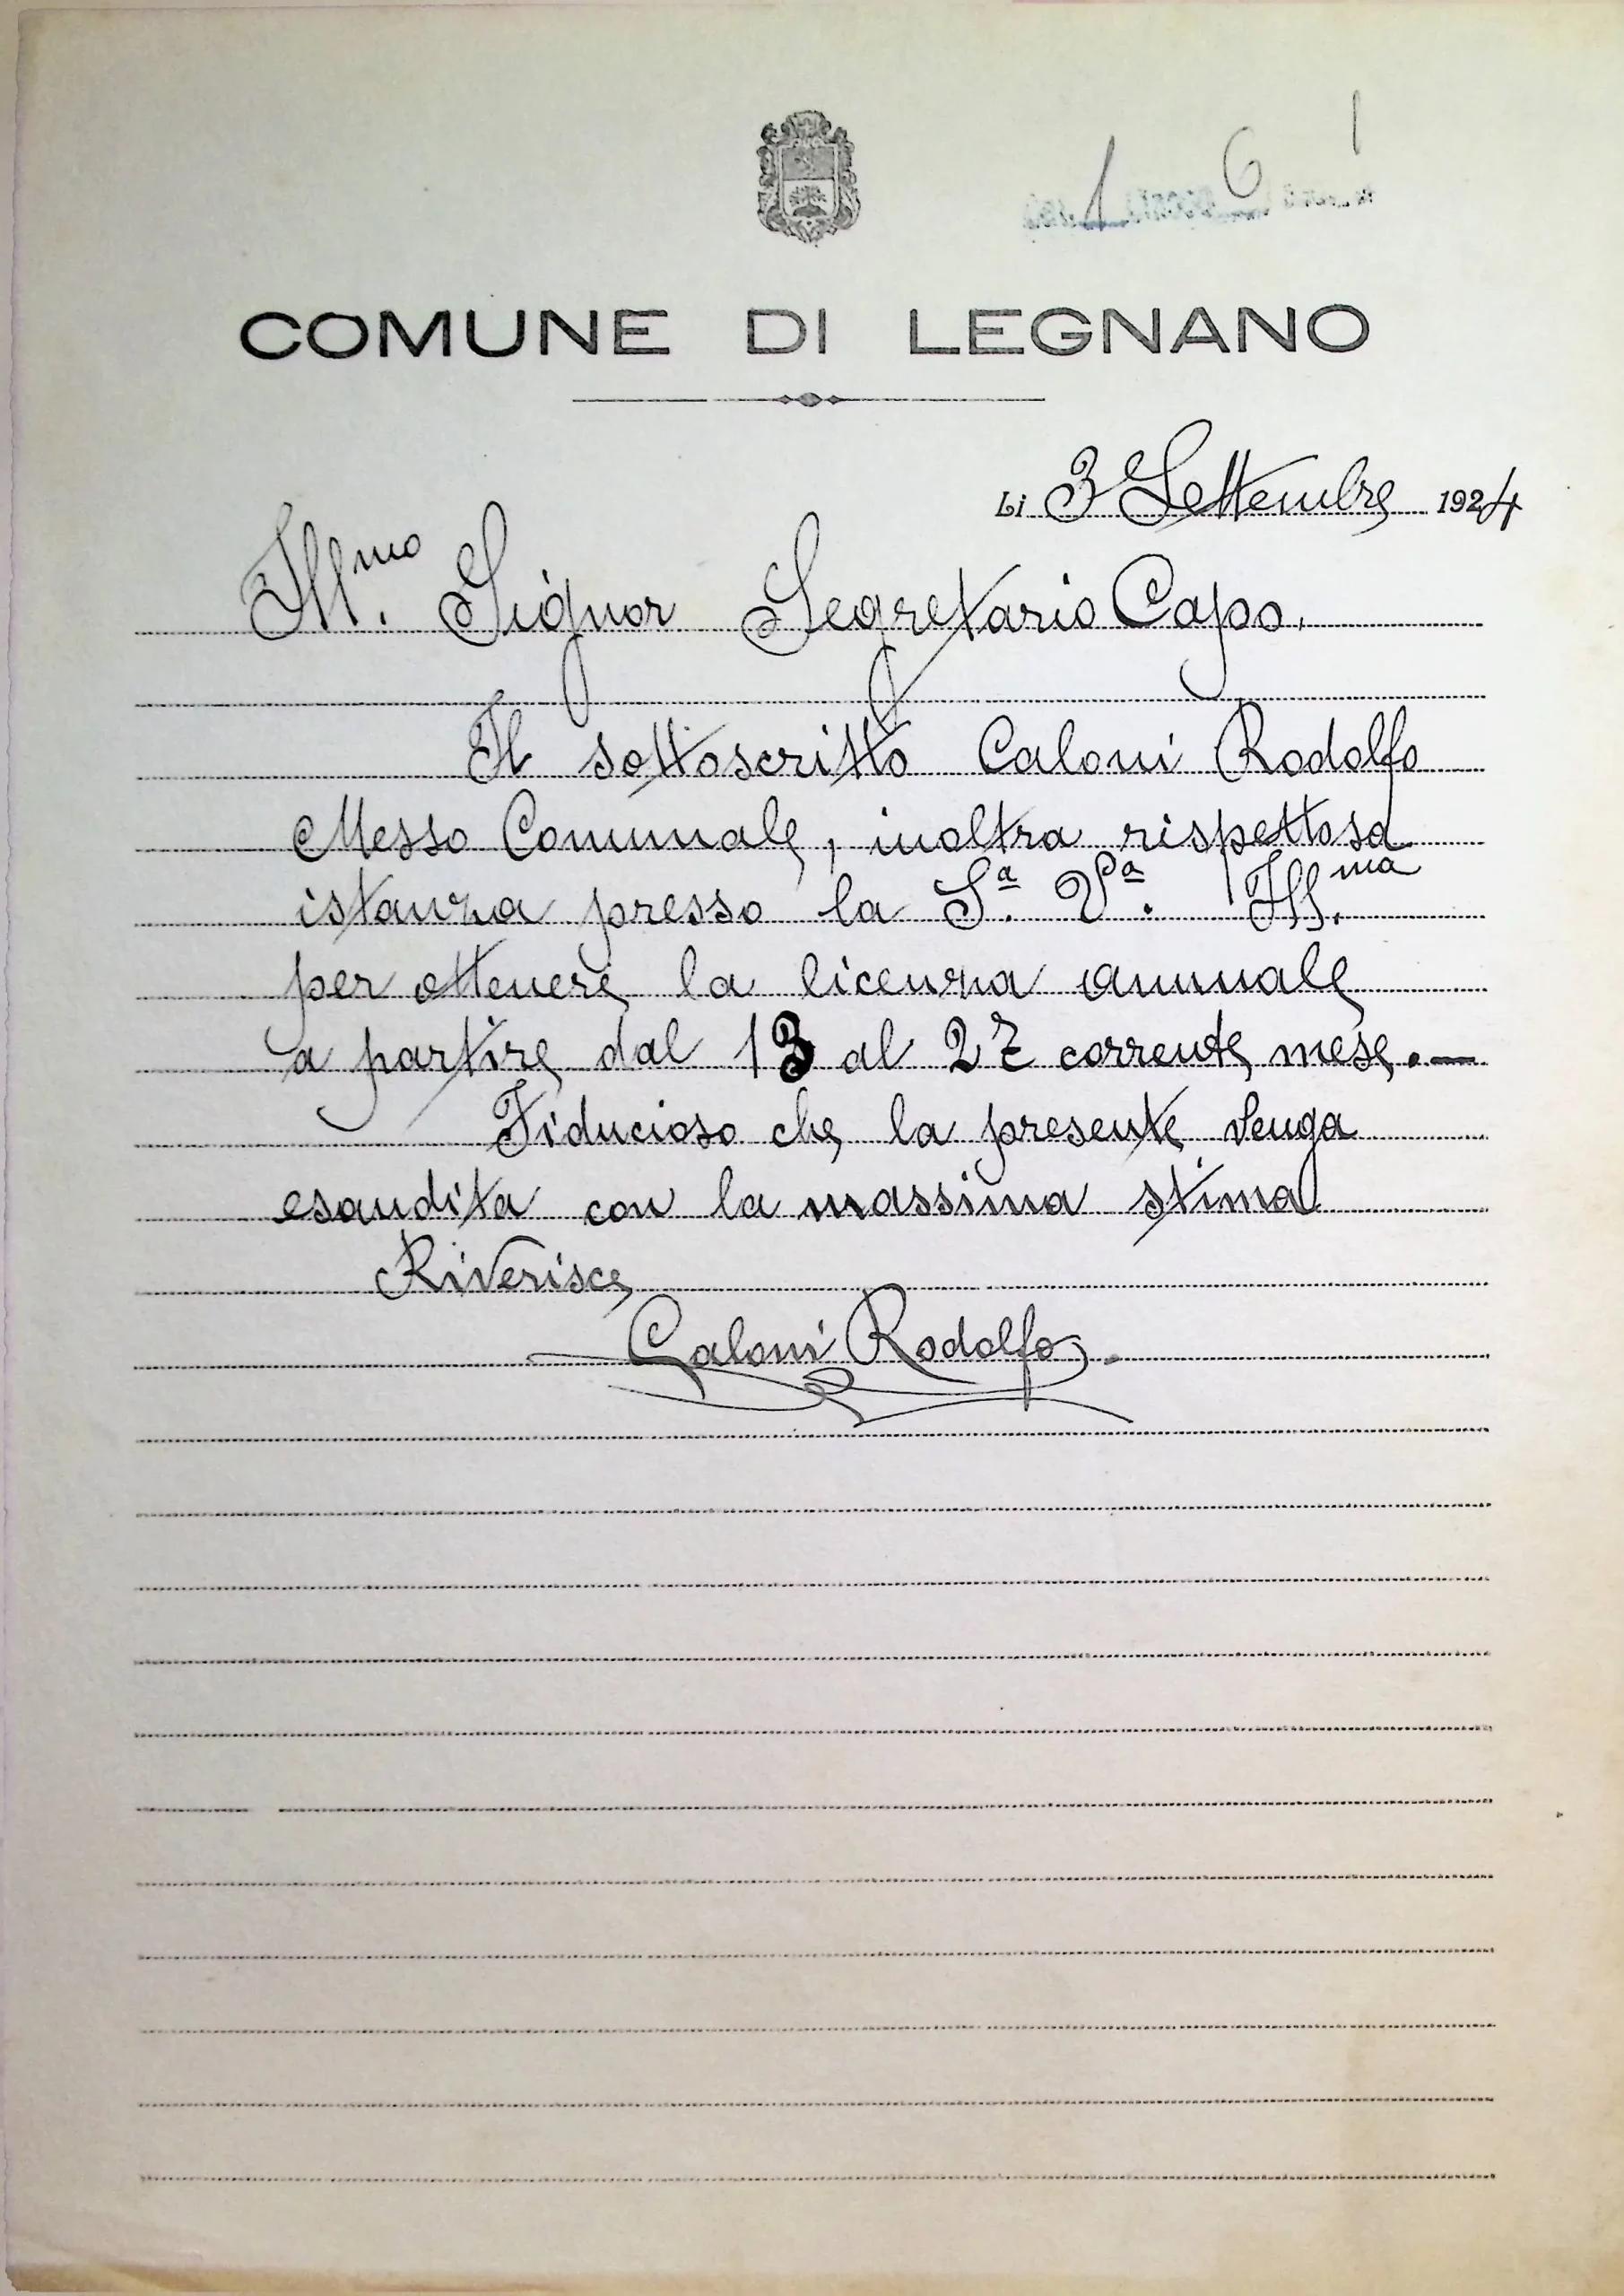 1 6 1
COMUNE DI LEGNANO
Li 3 Settembre 1924
Ill.mo Signor Segretario Capo.
Il sottoscritto Caloni Rodolfo
Messo Comunale, inoltra rispettosa
istanza presso la S.a V.a Ill.ma
per ottenere la licenza annuale
a partire dal 13 al 27 corrente mese.—
Fiducioso che la presente venga
esaudita con la massima stima
Riverisce
Caloni Rodolfo